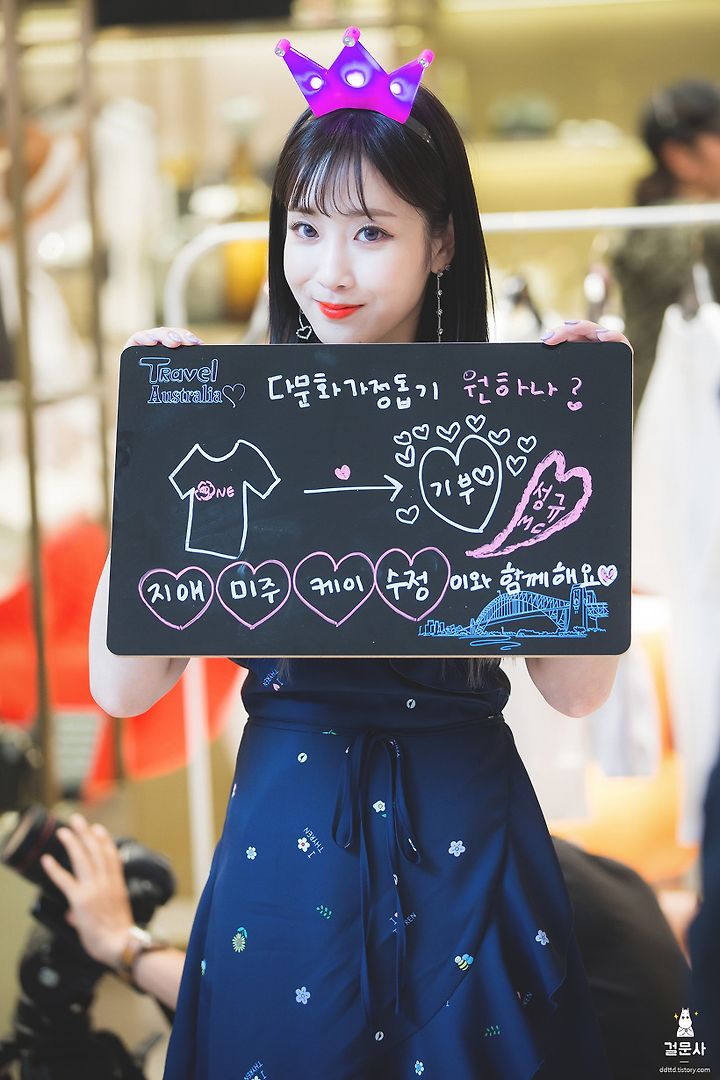 Travel
Australia
다문화가정돕기 원하나?
ONE
기부
성규
MC
지애 미주 케이 수정 이와 함께해요
I THYREN
걸문사
ddttd.tistory.com